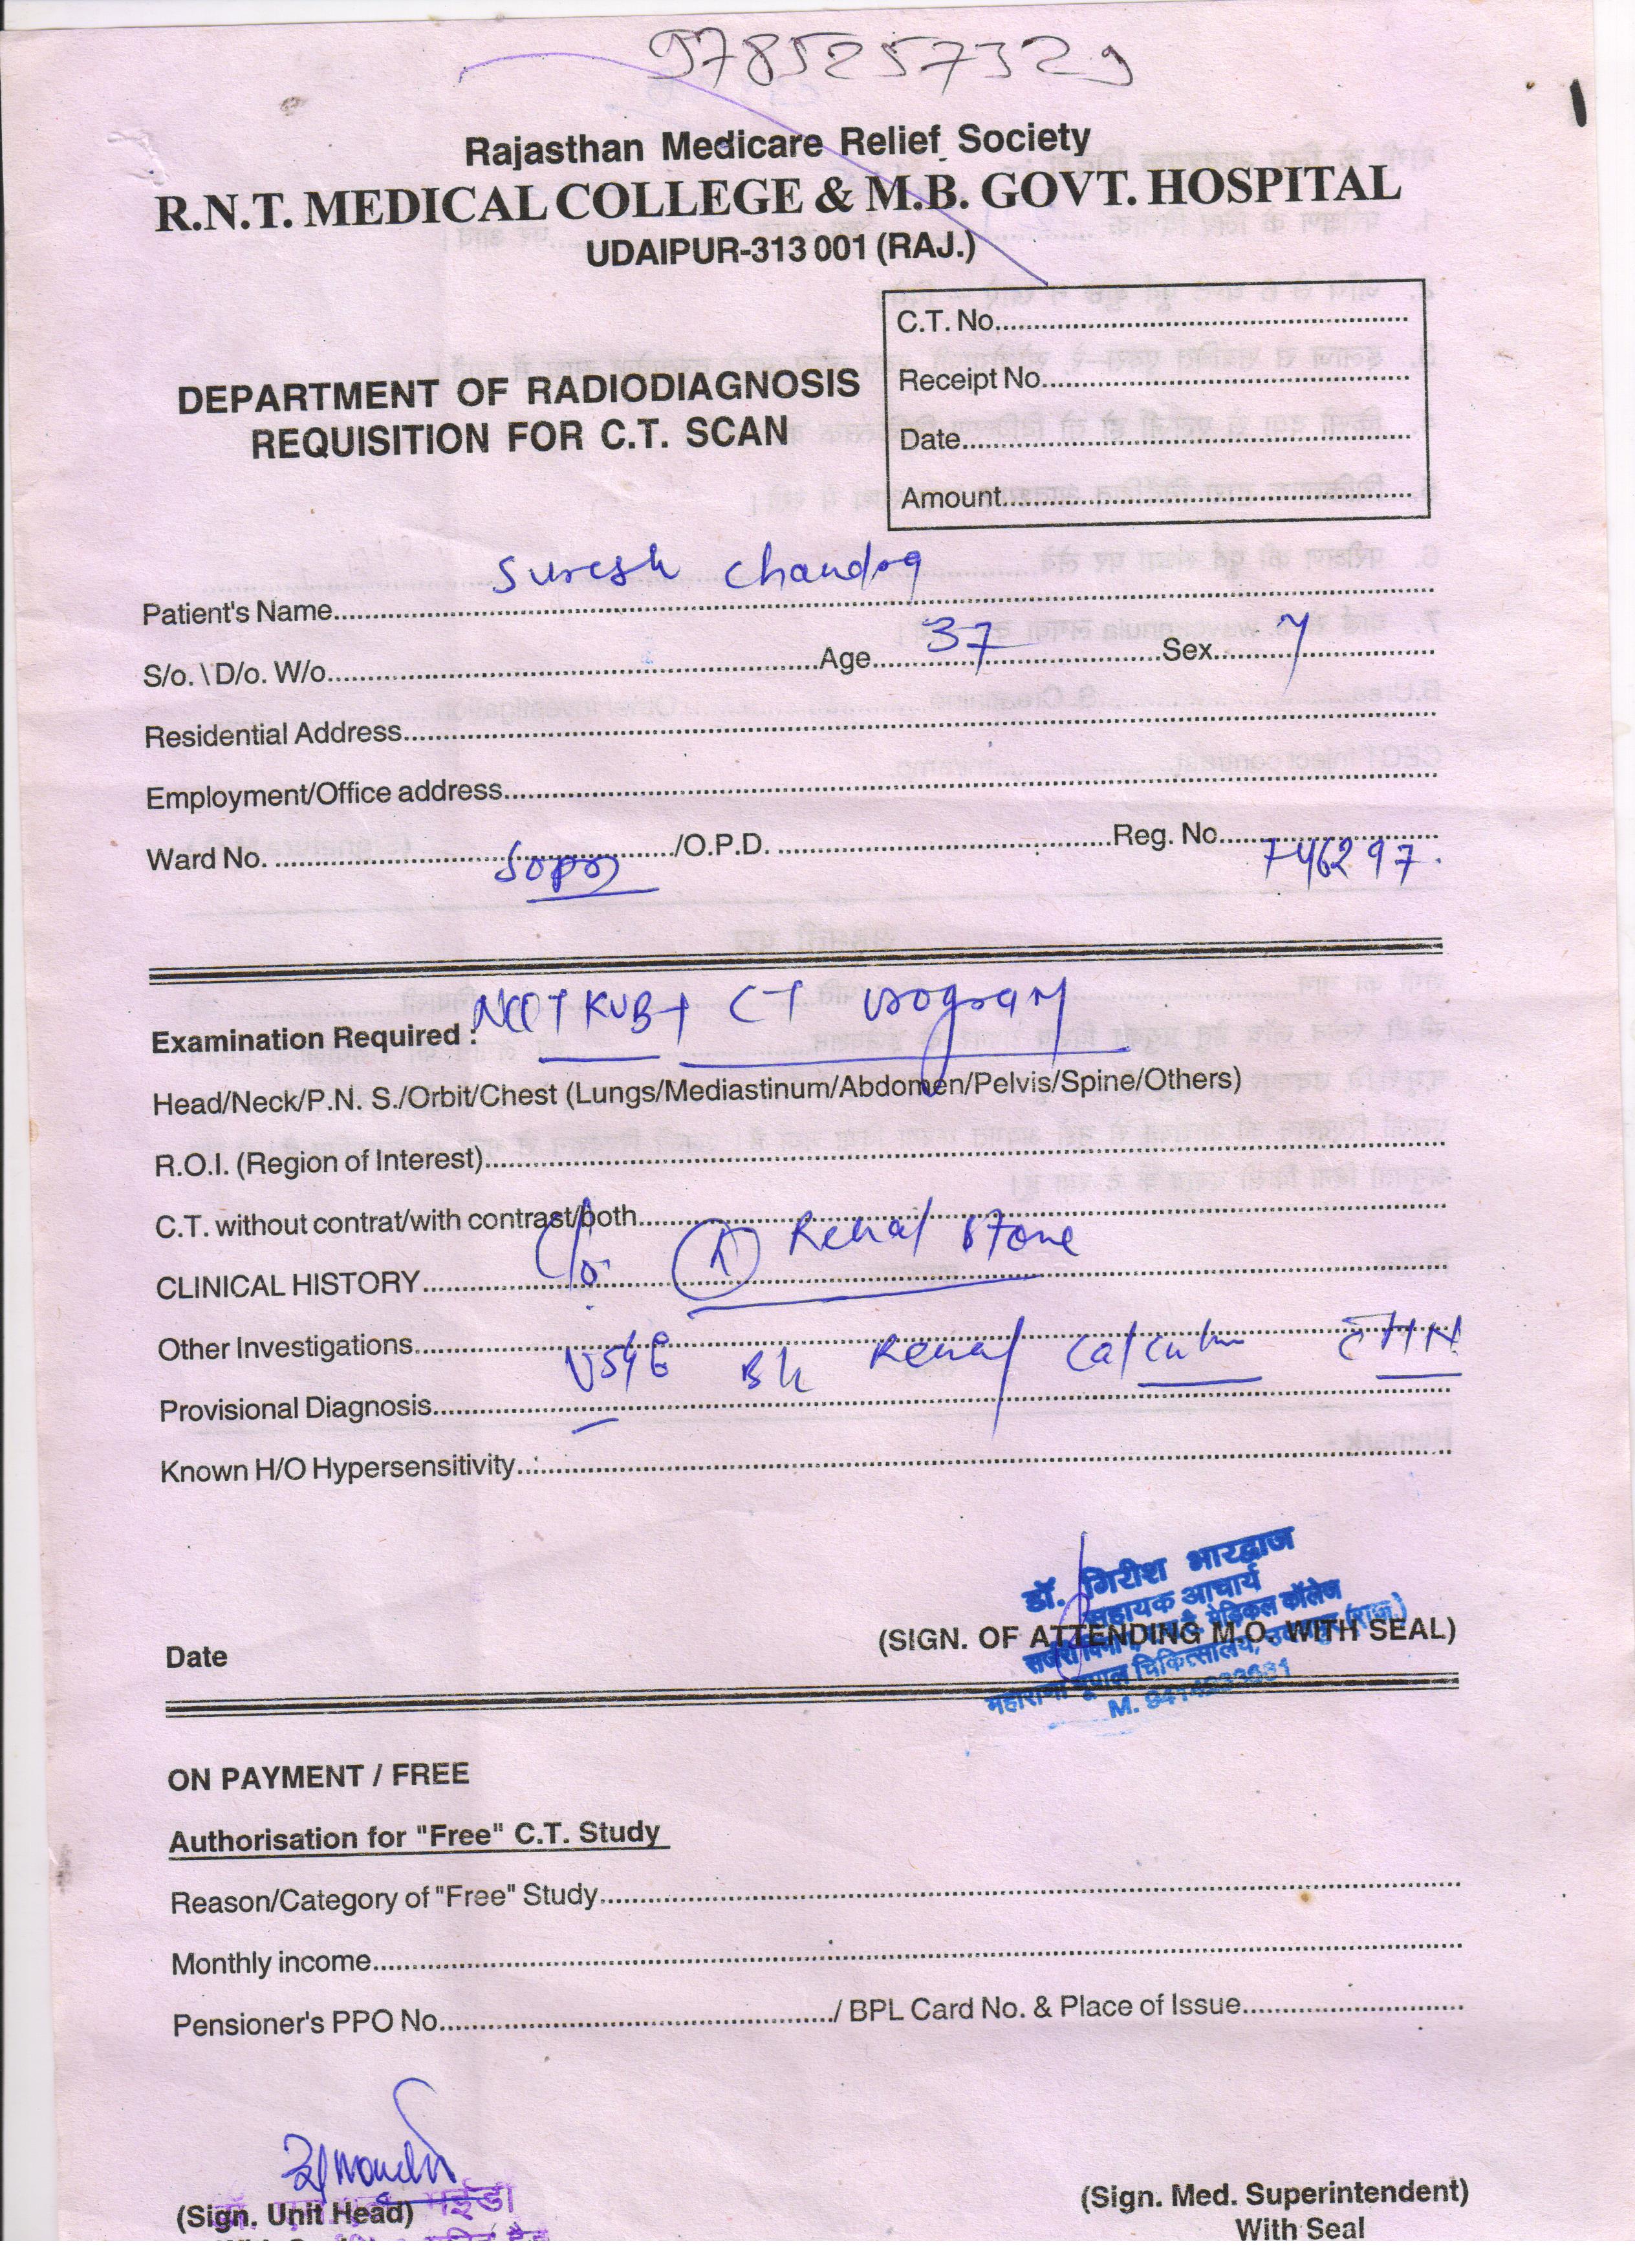 9785257329
Rajasthan Medicare Relief Society
R.N.T. MEDICAL COLLEGE & M.B. GOVT. HOSPITAL
UDAIPUR-313 001 (RAJ.)
C.T. No.
Receipt No.
Date
Amount
DEPARTMENT OF RADIODIAGNOSIS
REQUISITION FOR C.T. SCAN
Patient's Name Suresh Chandra
S/o. \ D/o. W/o Age 37 Sex
Residential Address
Employment/Office address
Ward No. /O.P.D. Reg. No. 746297
Examination Required : NCCT KUB + CT urogram
Head/Neck/P.N. S./Orbit/Chest (Lungs/Mediastinum/Abdomen/Pelvis/Spine/Others)
R.O.I. (Region of Interest)
C.T. without contrat/with contrast/both
CLINICAL HISTORY Renal stone
Other Investigations
Renal calculi
Provisional Diagnosis
Known H/O Hypersensitivity
डॉ. गिरीश भारद्वाज
सहायक आचार्य
मेडिकल कॉलेज
Date (SIGN. OF ATTENDING M.O. WITH SEAL)
चिकित्सालय,
ON PAYMENT / FREE
Authorisation for "Free" C.T. Study
Reason/Category of "Free" Study
Monthly income
Pensioner's PPO No. / BPL Card No. & Place of Issue
(Sign. Unit Head) (Sign. Med. Superintendent)
With Seal